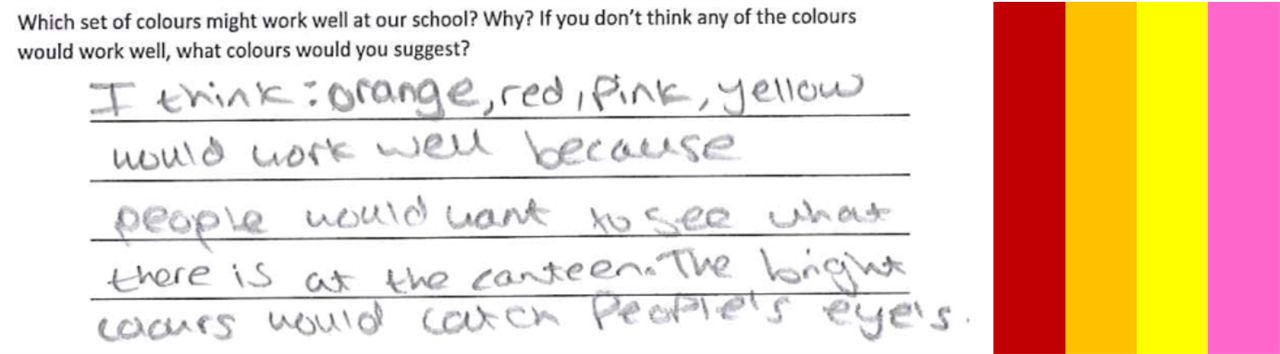 Which set of colours might work well at our school? Why? If you don't think any of the colours
would work well, what colours would you suggest?
I think: orange, red, pink, yellow
would work well because
people would want to see what
there is at the canteen. The bright
coours would catch People's eye's.